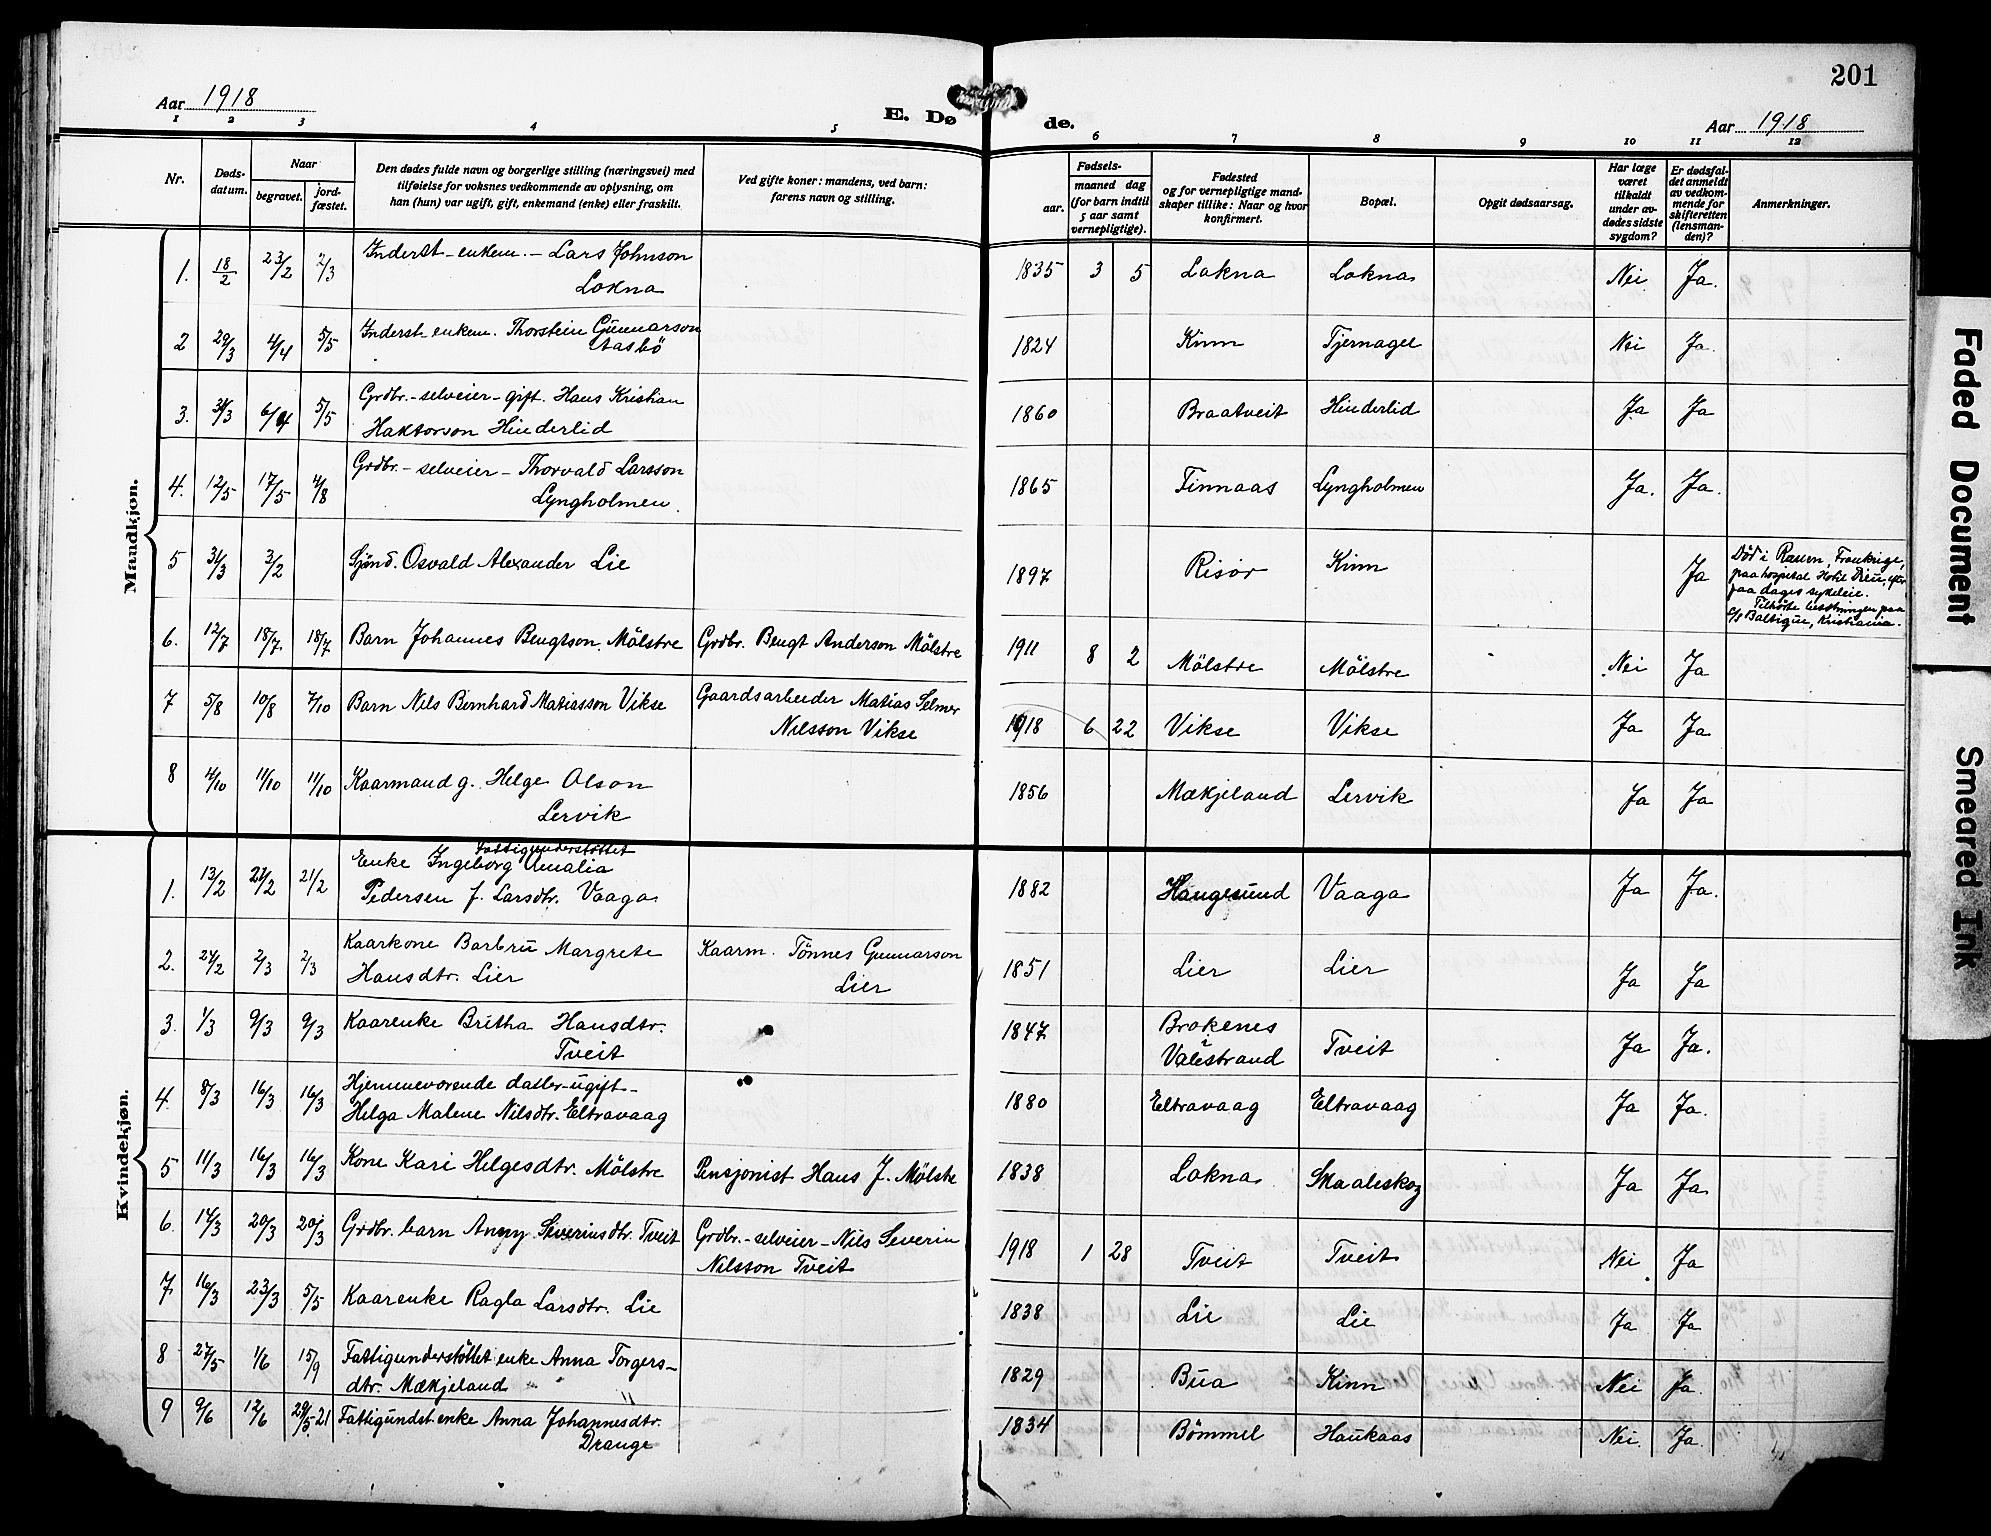 201
Aar 1918
E. Døde.
Aar 1918
1 2 3 4 5 6 7 8 9 10 11 12
Nr.
Døds-
datum.
Naar
begravet.
jord-
fæstet.
Den dødes fulde navn og borgerlige stilling (næringsvei) med
tilføielse for voksnes vedkommende av oplysning, om
han (hun) var ugift, gift, enkemand (enke) eller fraskilt.
Ved gifte koner: mandens, ved barn:
farens navn og stilling.
Fødsels-
aar.
maaned dag
(for barn indtil
5 aar samt
vernepligtige).
Fødested
og for vernepligtige mand-
skaper tillike: Naar og hvor
konfirmert.
Bopæl.
Opgit dødsaarsag.
Har læge
været
tilkaldt
under av-
dødes sidste
sygdom?
Er dødsfal-
det anmeldt
av vedkom-
mende for
skifteretten
(lensman-
den)?
Anmerkninger.
Mandkjøn.
1. 18/2 23/2 2/3 Inderst - enkem. - Lars Johnson
Lokna
1835 3 5 Lokna Lokna Nei Ja.
2 29/3 4/4 5/5 Inderst - enkem. Thorstein Gunnarson
Aasbö
1824 Kinn Tjernagel Nei Ja.
3. 30/3 6/4 5/5 Grdbr. - selveier - gift. Hans Kristian
Haktorson Hinderlid
1860 Braatveit Hinderlid Ja Ja
4. 12/5 17/5 4/8 Grdbr. - selveier - Thorvald Larsson
Lyngholmen.
1865 Finnaas Lyngholmen Ja. Ja.
5 31/3 3/2 Sjömd. Osvald Alexander Lie
1897 Risör Kinn Ja
Död i Rouen, Frankrige,
paa hospital Hotel Dieu, efter
faa dages sykeleie.
Tilhörte besetningen paa
S/S Baltique, Kristiania.
6. 12/7 18/7. 18/7 Barn Johannes Bengtson Mölstre Grdbr. Bengt Anderson Mölstre
1911 8 2 Mölstre Mölstre Nei Ja
7 5/8 10/8 7/10 Barn Nils Bernhard Matiasson Vikse Gaardsarbeider Matias Selmer
Nilsson Vikse
1918 6 22 Vikse Vikse Ja Ja
8 4/10 11/10 11/10 Kaarmand g. Helge Olson
Lervik
1856 Mækjeland Lervik Ja Ja
Kvindekjøn.
Fattigunderstöttet
1. 13/2 21/2 21/2 Enke Ingeborg Amalia
Pedersen f. Larsdtr. Vaaga
1882 Haugesund Vaaga Ja Ja.
2. 24/2 2/3 2/3 Kaarkone Barbru Margrete
Hansdtr. Lier
Kaarm. Tönnes Gunnarson
Lier
1851 Lier Lier Ja Ja
3. 1/3 9/3 9/3 Kaarenke Britha Hansdtr.
Tveit
1847 Brokenes
i
Valestrand Tveit Ja Ja.
4. 8/3 16/3 16/3 Hjemmeværende datter - ugift -
Helga Malene Nilsdtr. Eltravaag
1880 Eltravaag Eltravaag Ja Ja.
5 11/3 16/3 16/3 Kone Kari Helgesdtr. Mölstre Pensjonist Hans J. Mölstre
1838 Lokna Skaaleskog Ja Ja.
6. 14/3 20/3 20/3 Grdbr. barn Anny Severinsdtr. Tveit Grdbr. - selveier - Nils Severin
Nilsson Tveit
1918 1 28 Tveit Tveit Nei Ja
7. 16/3 23/3 5/5 Kaarenke Ragla Larsdtr. Lie
1838 Lie Lie Ja Ja
8 27/5 1/6 15/9 Fattigunderstöttet enke Anna Torgers-
dtr. Mækjeland
1829 Bua Kinn Nei Ja.
9 9/6 12/6 29/5 21 Fattigundst. enke Anna Johannesdtr.
Drange
1834 Bömmel Haukaas Nei Ja.
Faded Document
Smeared Ink